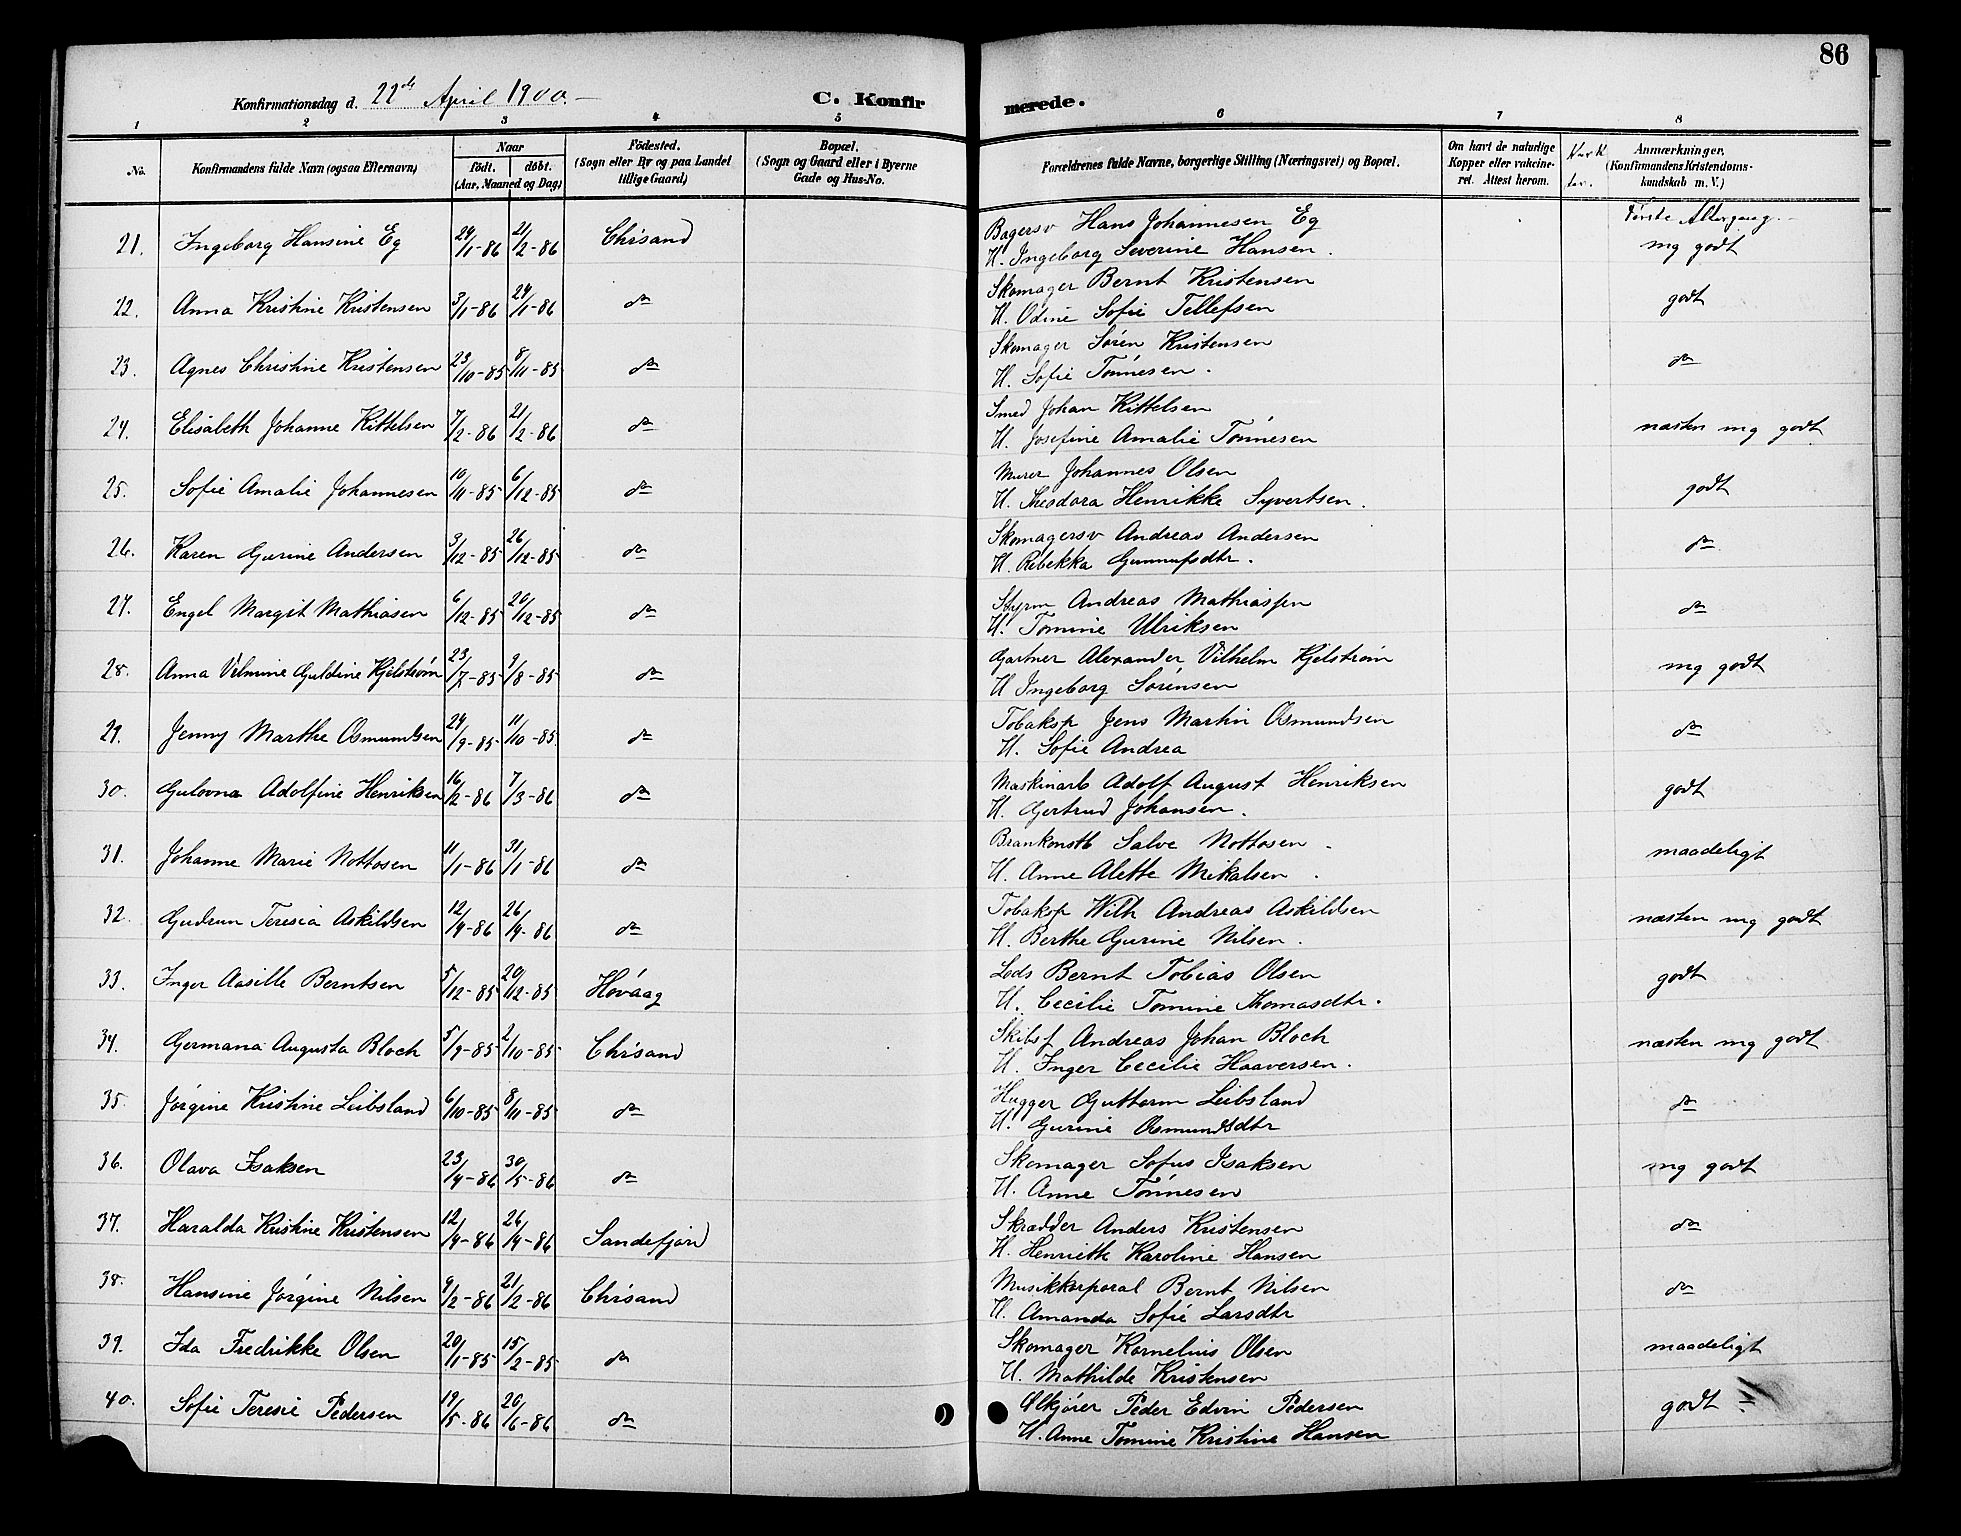 86
Konfirmationsdag d. 22de April 1900.- C. Konfirmerede.
1 2 3 4 5 6 7 8
No. Konfirmandens fulde Navn (ogsaa Efternavn) Naar födt. döbt. (Aar, Maaned og Dag) Födested. (Sogn eller By og paa Landet tillige Gaard) Bopæl. (Sogn og Gaard eller i Byerne Gade og Hus-No. Forældrenes fulde Navne, borgerlige Stilling (Næringsvei) og Bopæl. Om havt de naturlige Kopper eller vakcineret. Attest herom. Anmærkninger. (Konfirmandens Kristendomskundskab m. V.)
Første Altergang.-
21. Ingeborg Hansine Eg 29/1-86 21/2-86 Chrsand Bagersv Hans Johannesen Eg mg godt
H. Ingeborg Severine Hansen.
22. Anna Kristine Kristensen 3/1-86 24/1-86 do Skomager Bernt Kristensen godt
H. Odine Sofie Tellefsen
23. Agnes Christine Kristensen 23/10-85 8/11-85 do Skomager Sören Kristensen do
H. Sofie Tönnesen.
24. Elisabeth Johanne Kittelsen 7/2-86 21/2-86 do Smed Johan Kittelsen næsten mg godt
H. Josefine Amalie Tönnesen
25. Sofie Amalie Johannesen 10/11-85 6/12-85 do Murer Johannes Olsen godt
H. Theodora Henrikke Syvertsen.
26. Karen Gurine Andersen 3/12-85 26/12-85 do Skomagersv Andreas Andersen do
H. Rebekka Gunnufsdtr.
27. Engel Margit Mathiasen 6/12-85 20/12-85 do Styrm Andreas Mathiassen do
H. Tomine Ulriksen
28. Anna Vilmine Guldine Kjelström 23/7-85 9/8-85 do Gartner Alexander Vilhelm Kjelström mg godt
H Ingeborg Sörensen
29. Jenny Marthe Osmundsen 24/9-85 11/10-85 do Tobaksp Jens Martin Osmundsen do
H. Sofie Andrea
30. Gulovna Adolfine Henriksen 16/2-86 7/3-86 do Maskinarb Adolf August Henriksen godt
H. Gertrud Johansen.
31. Johanne Marie Nottosen 11/1-86 31/1-86 do Brankonstb Salve Nottosen. maadeligt
H. Anne Alette Mikalsen.
32. Gudrun Teresia Askildsen 12/4-86 26/4-86 do Tobaksp Wilh Andreas Askildsen næsten mg godt
H. Berthe Gurine Nilsen.
33. Inger Aasille Berntsen 5/12-85 20/12-85 Hövaag Lods Bernt Tobias Olsen godt
H. Cecilie Tomine Thomasdtr.
34. Germana Augusta Bloch 5/9-85 2/10-85 Chrsand Skibsf Andreas Johan Bloch næsten mg godt
H. Inger Cecilie Haaversen.
35. Jörgine Kristine Leibsland 6/10-85 8/11-85 do Hugger Guttorm Leibsland do
H. Gurine Osmundsdtr
36. Olava Isaksen 23/4-86 30/5-86 do Skomager Sofus Isaksen mg godt
H. Anne Tönnesen
37. Haralda Kristine Kristensen 12/4-86 26/4-86 Sandefjord Skrædder Anders Kristensen do
H. Henriette Karoline Hansen
38. Hansine Jörgine Nilsen 9/2-86 21/2-86 Chrsand Musikkorporal Bernt Nilsen do
H. Amanda Sofie Larsdtr
39. Ida Fredrikke Olsen 20/1-85 15/2-85 do Skomager Kornelius Olsen maadeligt
H. Mathilde Kristensen
40. Sofie Teresie Pedersen 19/5-86 20/6-86 do Ølkjörer Peder Edvin Pedersen godt
H. Anne Tomine Kristine Hansen